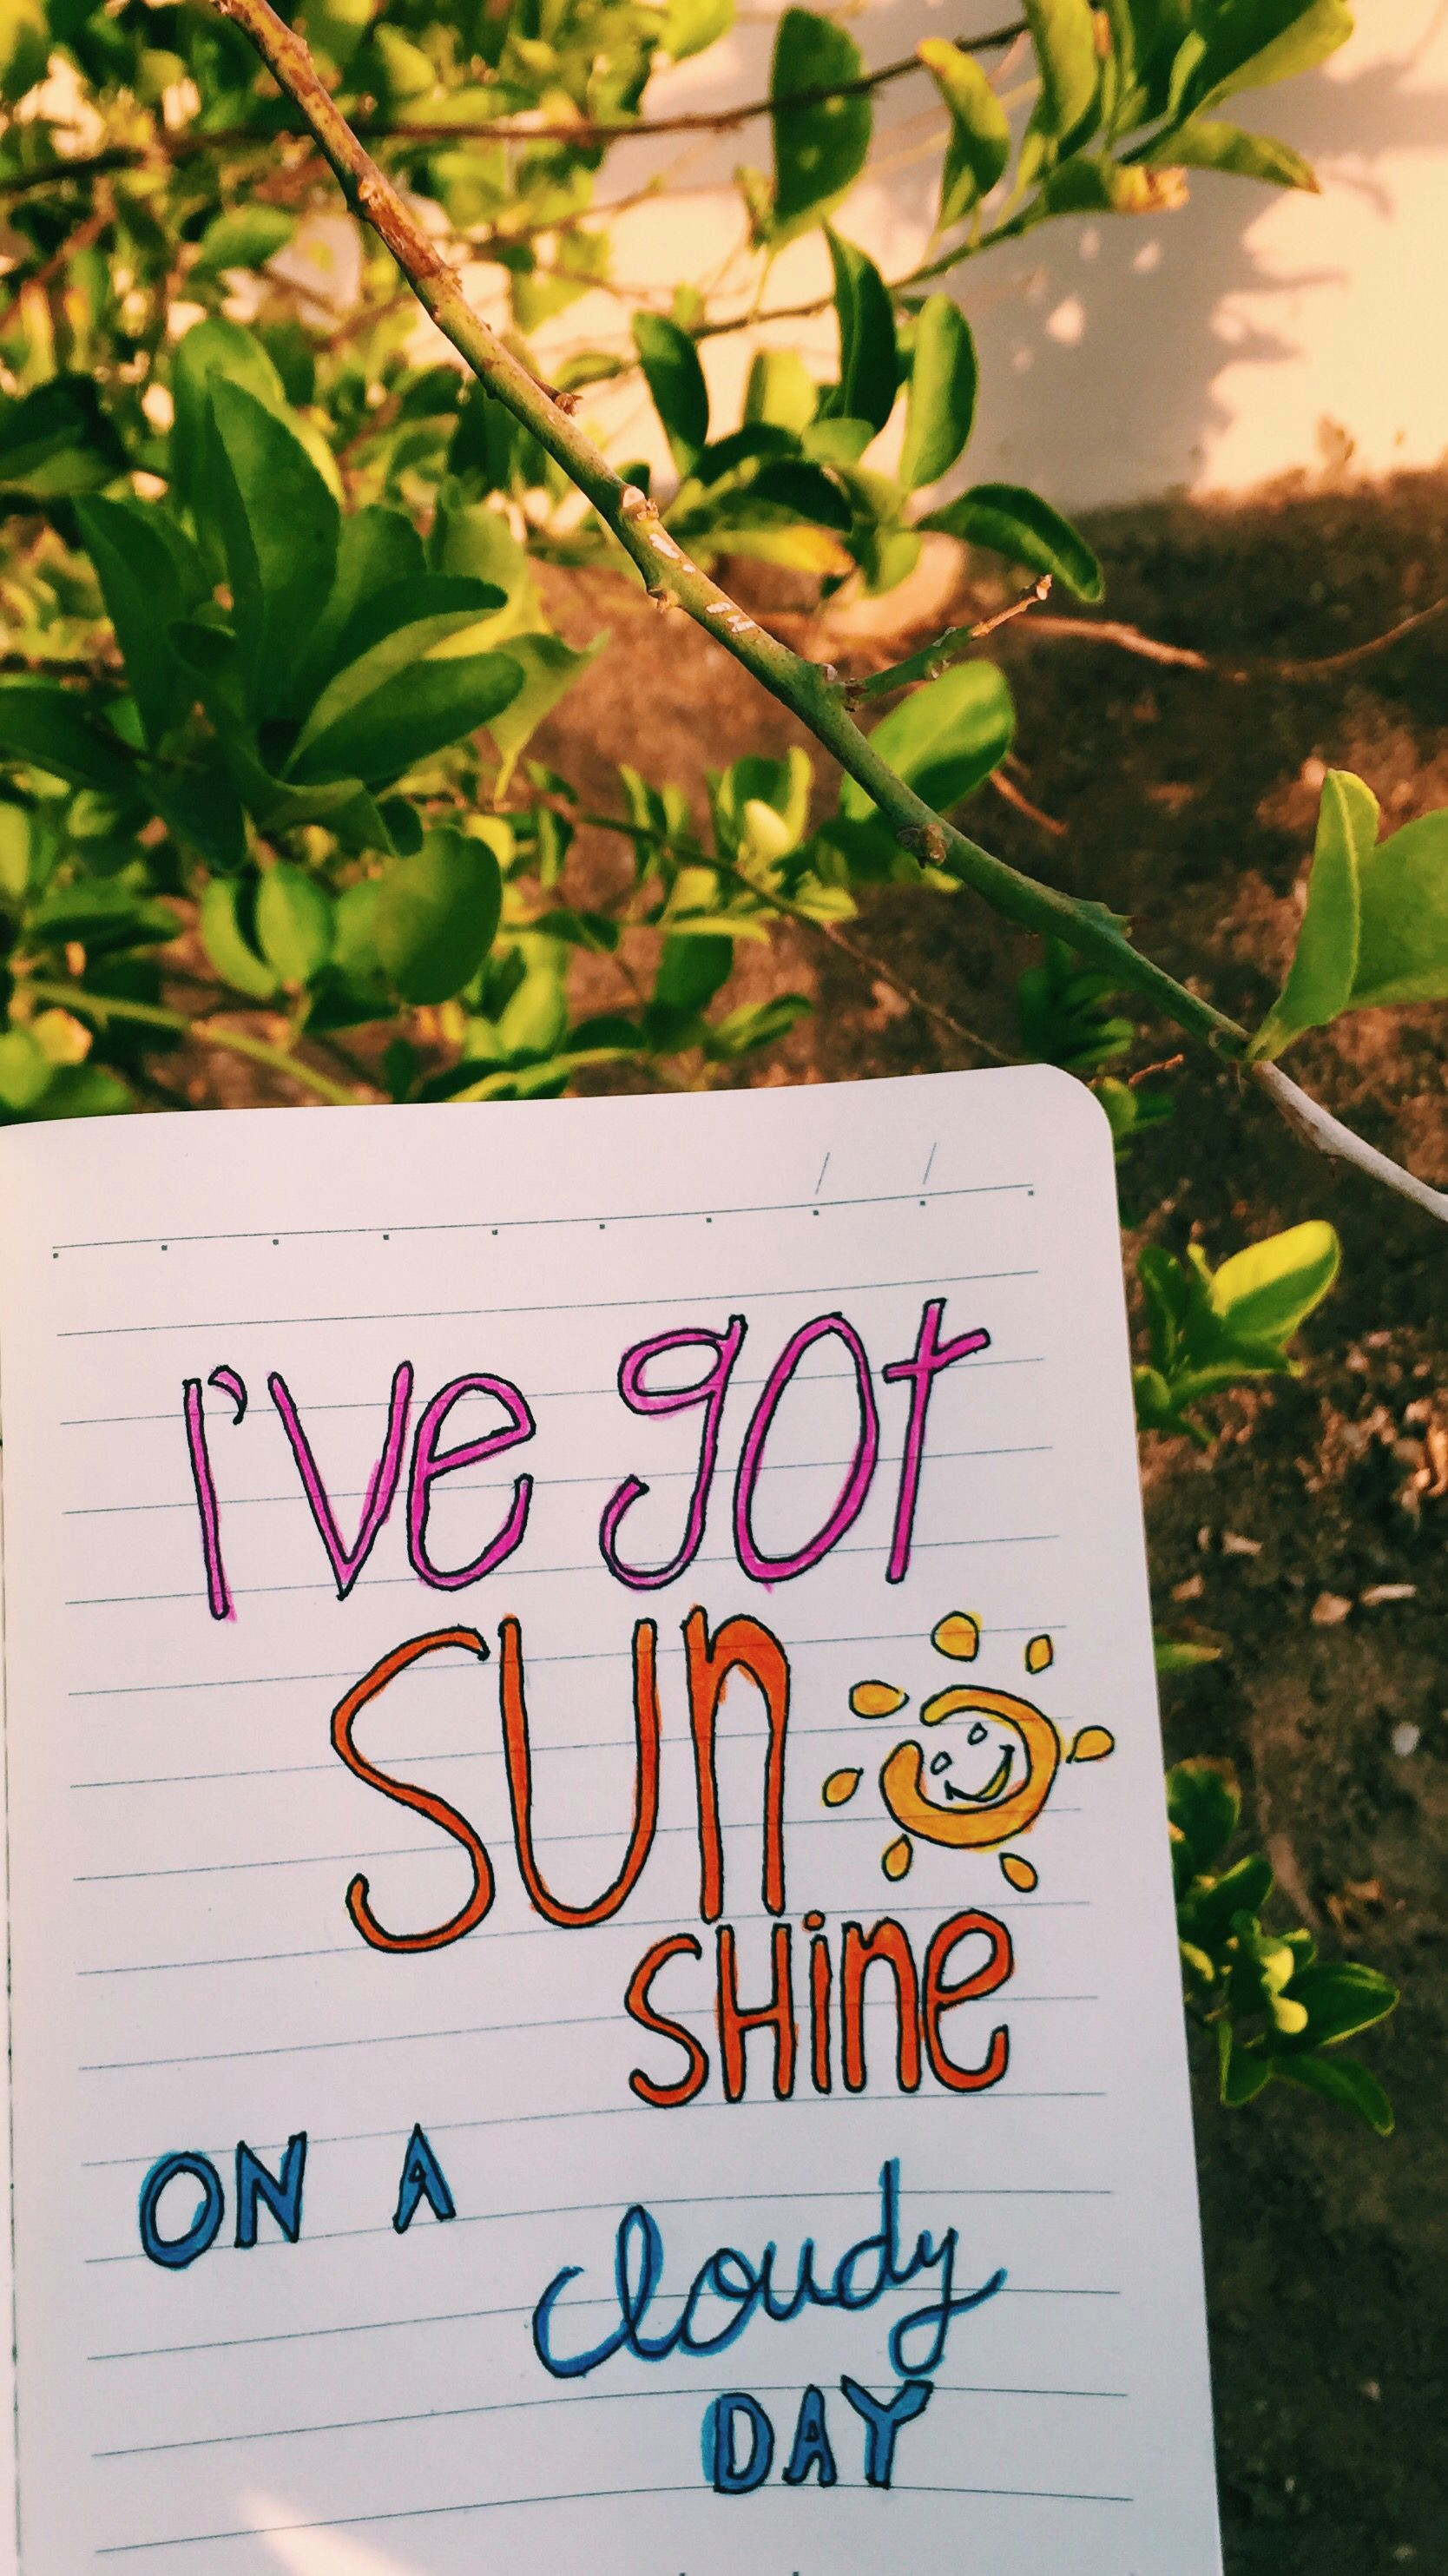 I've got
SUn
SHine
ON A
cloudy
DAY